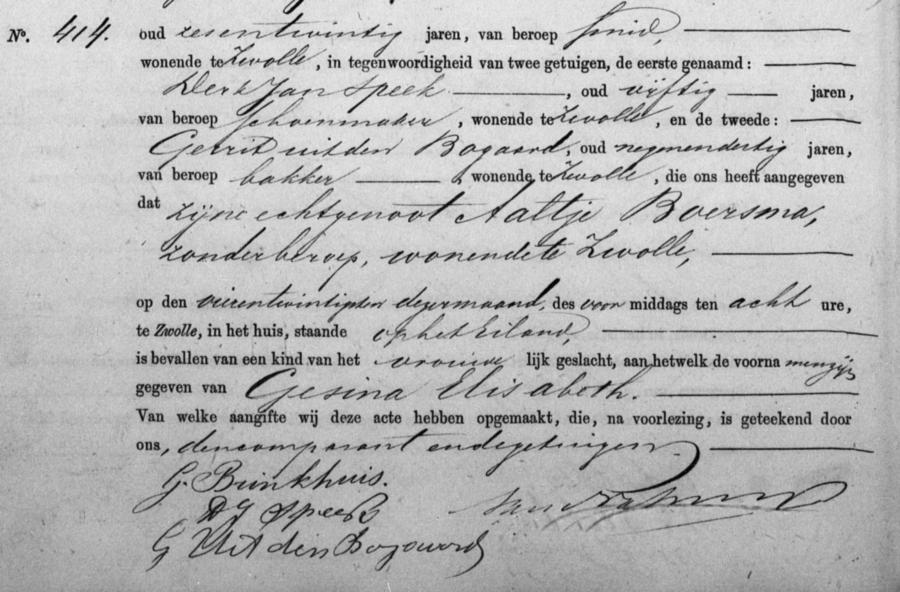 No. 414. oud zesentwintig jaren, van beroep smid,
wonende te Zwolle, in tegenwoordigheid van twee getuigen, de eerste genaamd:
Derk Jan Speek, oud vijftig jaren,
van beroep schoenmaker, wonende te Zwolle, en de tweede:
Gerrit uit den Bogaard, oud negenendertig jaren,
van beroep bakker, wonende te Zwolle, die ons heeft aangegeven
dat zijne echtgenoot Aaltje Boersma,
zonder beroep, wonende te Zwolle,
op den vierentwintigsten dezer maand, des voor middags ten acht ure,
te Zwolle, in het huis, staande op het Eiland,
is bevallen van een kind van het vrouwe lijk geslacht, aan hetwelk de voorna men zijn
gegeven van Gesina Elisabeth.
Van welke aangifte wij deze acte hebben opgemaakt, die, na voorlezing, is geteekend door
ons, den comparant en de getuigen.
G. Brinkhuis.
DJ Speek
G Uit den Bogaard